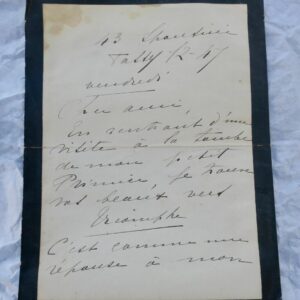 43
vendredi
Cher ami
En rentrant d'une
visite à la tombe
de mon petit
je trouve
vos beaux vers
Triomphe
C'est comme une
réponse à mon